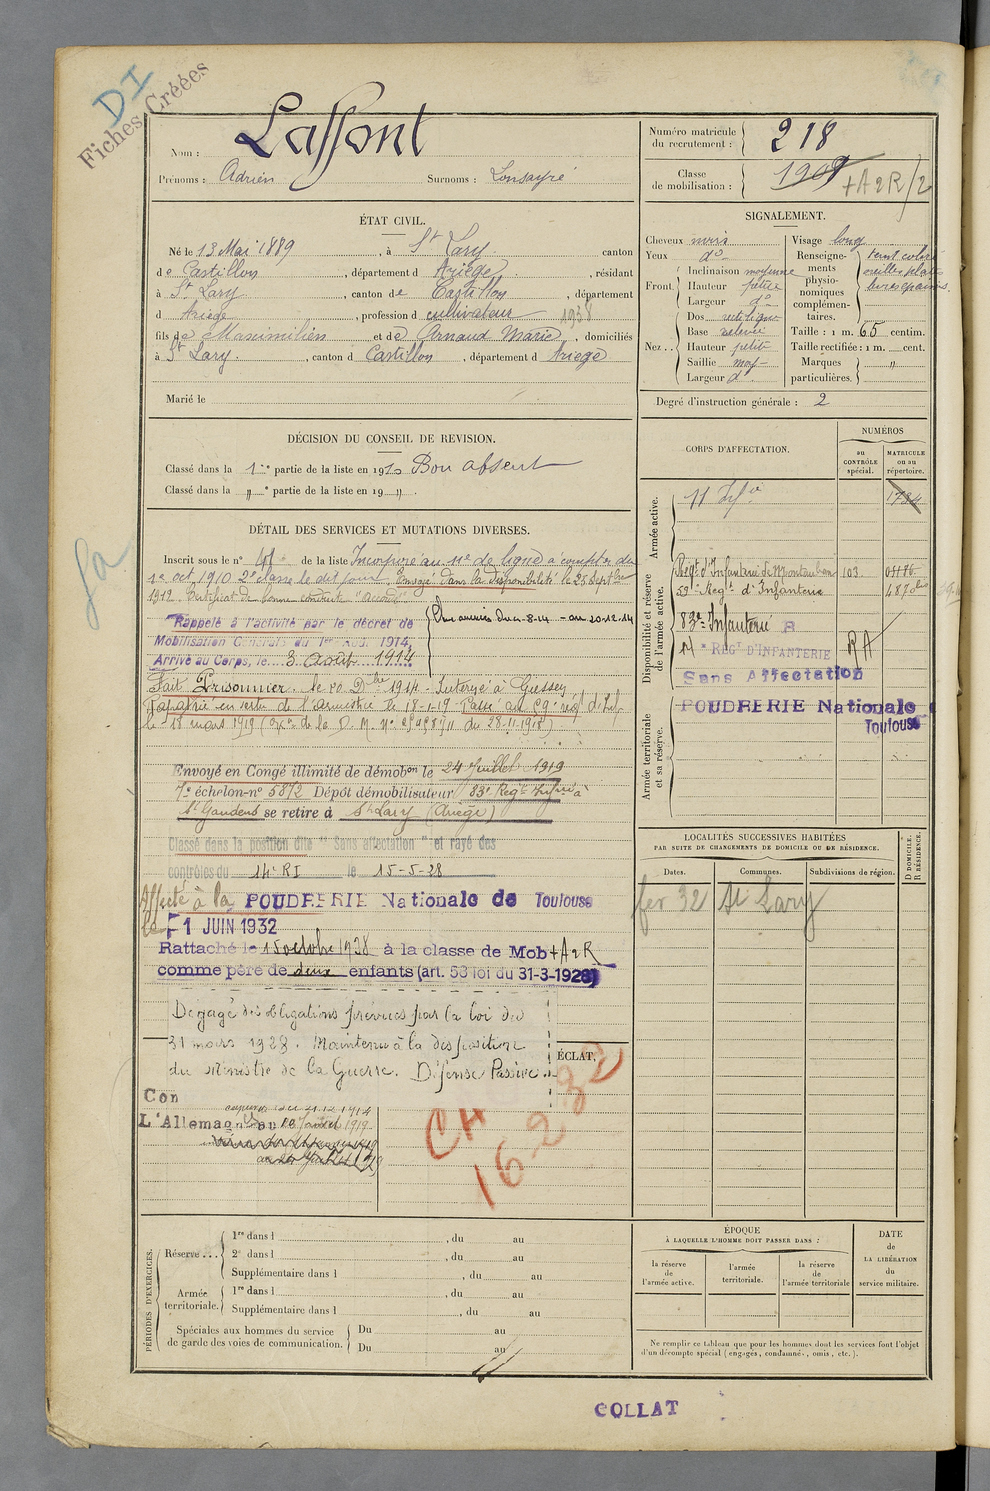 DI
Fiches Créées
Nom : Laffont
Prénoms : Adrien Surnoms : Lonsayré
Numéro matricule du recrutement : 218
Classe de mobilisation : 1909 +A2R/2
ÉTAT CIVIL.
Né le 13 Mai 1889, à St Lary canton
de Castillon, département d Ariège, résidant
à St Lary, canton de Castillon, département
d Ariège, profession d cultivateur 1938
fils de Maximilien et de Arnaud Marie, domiciliés
à St Lary, canton d Castillon, département d Ariège
Marié le
SIGNALEMENT.
Cheveux noirs
Yeux do
Front. Inclinaison moyenne
Hauteur petite
Largeur do
Nez.. Dos rectiligne
Base relevée
Hauteur petite
Saillie moy
Largeur do
Visage long
Renseignements physionomiques complémentaires. teint coloré
oreilles plates
lèvres épaisses.
Taille : 1 m. 65 centim.
Taille rectifiée : 1 m. cent.
Marques particulières. "
Degré d'instruction générale : 2
DÉCISION DU CONSEIL DE REVISION.
Classé dans la 1re partie de la liste en 1910 Bon absent
Classé dans la " partie de la liste en 19 " .
DÉTAIL DES SERVICES ET MUTATIONS DIVERSES.
Inscrit sous le n° de la liste Incorporé au 11e de ligne à compter du
1er oct. 1910 2e classe le dit jour. Envoyé dans la disponibilité le 25 septbre
1912. Certificat de bonne conduite "accordé"
Rappelé à l'activité par le décret de
Mobilisation Générale du 1er Aoû. 1914,
Arrivé au Corps, le 3 Août 1914
Aux armées du 8-14 au 20-12-14
Fait Prisonnier le 20 Dbre 1914 - Interné à Giessen
Rapatrié en vertu de l'armistice le 18-1-19 Passé au 59e reg d'Inf
le 18 mars 1919
Envoyé en Congé illimité de démobon le 24 Juillet 1919
7e échelon-no 5872 Dépôt démobilisateur 83e Regt Infrie à
St Gaudens se retire à St Lary (Ariège)
Classé dans la position dite "Sans affectation" et rayé des
contrôles du 14e RI le 15-5-28
Affecté à la POUDRERIE Nationale de Toulouse
le 1 JUIN 1932
Rattaché le 15 octobre 1938 à la classe de Mob +A2R
comme père de deux enfants (art. 58 loi du 31-3-1928)
Dégagé des obligations prévues par la loi du
31 mars 1928. Maintenu à la disposition
du Ministre de la Guerre. Défense Passive.
ÉCLAT.
Con
L'Allemagn
au 18 Janvier 1919
CH
16-2-32
CORPS D'AFFECTATION.
NUMÉROS
au CONTRÔLE spécial.
MATRICULE ou au répertoire.
Armée active.
11 Infie
Disponibilité et réserve de l'armée active.
Regt d'Infanterie de Montauban 103
59e Regt d'Infanterie
83e Infanterie R
14e REGt D'INFANTERIE RA
Sans Affectation
Armée territoriale et sa réserve.
POUDRERIE Nationale
Toulouse
LOCALITÉS SUCCESSIVES HABITÉES
PAR SUITE DE CHANGEMENTS DE DOMICILE OU DE RÉSIDENCE.
Dates. Communes. Subdivisions de région. D DOMICILE. R RÉSIDENCE.
fev 32 St Lary
PÉRIODES D'EXERCICES.
Réserve... 1re dans l , du au
2e dans l , du au
Supplémentaire dans l , du au
Armée territoriale. 1re dans l , du au
Supplémentaire dans l , du au
Spéciales aux hommes du service de garde des voies de communication. Du au
Du au
ÉPOQUE
À LAQUELLE L'HOMME DOIT PASSER DANS :
la réserve de l'armée active.
l'armée territoriale.
la réserve de l'armée territoriale
DATE de LA LIBÉRATION du service militaire.
Ne remplir ce tableau que pour les hommes dont les services font l'objet
d'un décompte spécial (engagés, condamnés, omis, etc.).
COLLAT